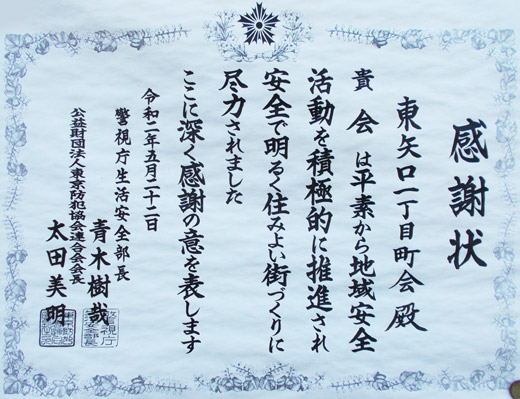 感謝状
東矢口一丁目町会殿
貴会は平素から地域安全
活動を積極的に推進され
安全で明るく住みよい街づくりに
尽力されました
ここに深く感謝の意を表します
令和二年五月二十二日
警視庁生活安全部長
青木樹哉
公益財団法人東京防犯協会連合会会長
太田美明